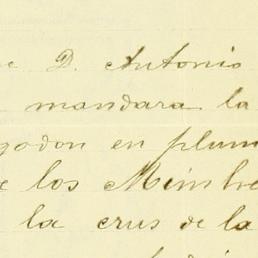 e D. Antonio
mandara la
godon en plum
e los Mimbre
la crus de la